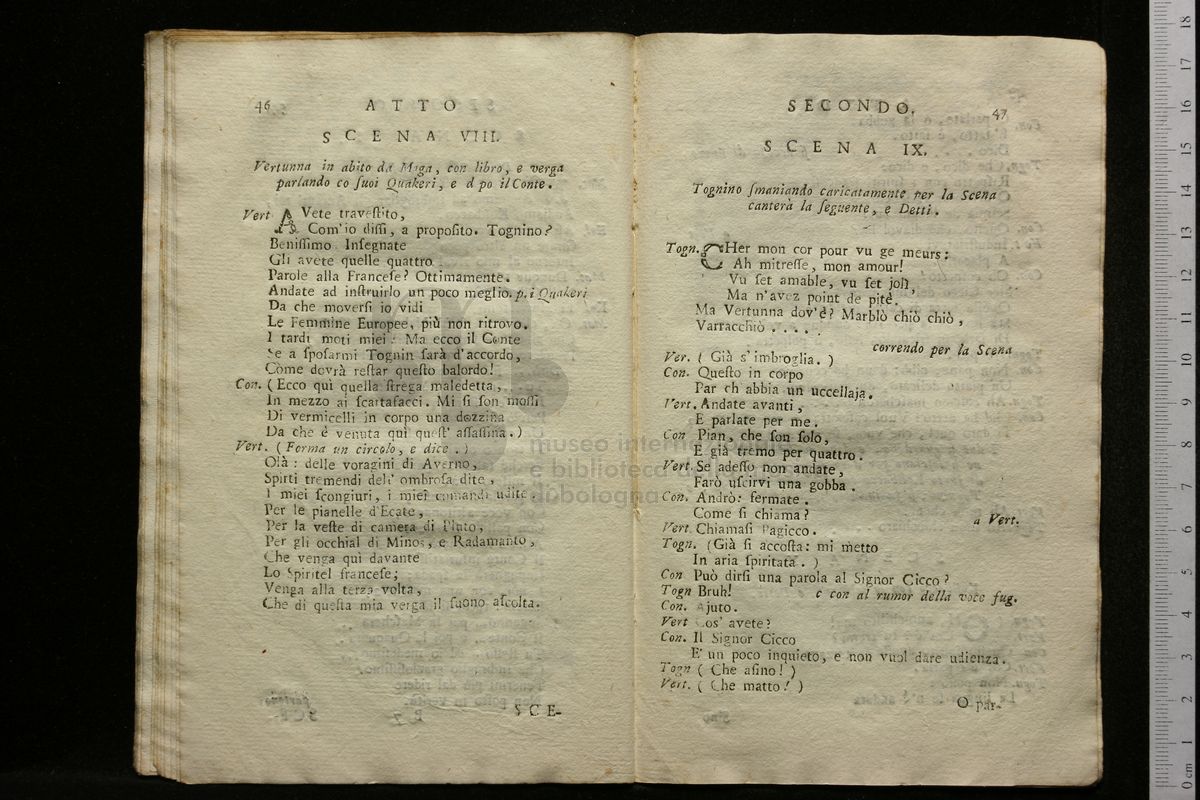 46 ATTO
SCENA VIII.
Vertunna in abito da Maga, con libro, e verga
parlando co ſuoi Quakeri, e d po il Conte.
Vert AVete traveſtito,
Com'io diſſi, a propoſito. Tognino?
Beniſſimo Inſegnate
Gli avete quelle quattro
Parole alla Franceſe? Ottimamente.
Andate ad inſtruirlo un poco meglio. p. i Quakeri
Da che moverſi io vidi
Le Femmine Europee, più non ritrovo.
I tardi moti miei: Ma ecco il Conte
Se a ſpoſarmi Tognin ſarà d'accordo,
Come dovrà reſtar queſto balordo!
Con. (Ecco quì quella ſtrega maledetta,
In mezzo ai ſcartafacci. Mi ſi ſon moſſi
Di vermicelli in corpo una dozzina
Da che è venuta quì queſt' aſſaſſina.)
Vert. (Forma un circolo, e dice.)
Olà: delle voragini di Averno,
Spirti tremendi dell' ombroſa dite,
I miei ſcongiuri, i miei comandi udite
Per le pianelle d'Ecate,
Per la veſte di camera di Pluto,
Per gli occhial di Minos, e Radamanto,
Che venga quì davante
Lo Spiritel franceſe;
Venga alla terza volta,
Che di queſta mia verga il ſuono aſcolta.
SCE-
SECONDO. 47
SCENA IX.
Tognino ſmaniando caricatamente per la Scena
canterà la ſeguente, e Detti.
Togn. CHer mon cor pour vu ge meurs:
Ah mitreſſe, mon amour!
Vu ſet amable, vu ſet joli,
Ma n'avez point de pitè.
Ma Vertunna dov'è? Marblò chiò chiò,
Varracchiò . . . . .
correndo per la Scena
Ver. (Già s'imbroglia.)
Con. Queſto in corpo
Par ch abbia un uccellaja.
Vert. Andate avanti,
E parlate per me.
Con Pian, che ſon ſolo,
E già tremo per quattro.
Vert. Se adeſſo non andate,
Farò uſcirvi una gobba.
Con. Andrò: fermate.
Come ſi chiama? a Vert.
Vert. Chiamaſi Pagicco.
Togn. (Già ſi accoſta: mi metto
In aria ſpiritata.)
Con Può dirſi una parola al Signor Cicco?
Togn Bruh! e con al rumor della voce fug.
Con. Ajuto.
Vert Cos' avete?
Con. Il Signor Cicco
E' un poco inquieto, e non vuol dare udienza.
Togn (Che aſino!)
Vert. (Che matto!)
O par-
museo internazionale
e biblioteca della
di bologna
0 cm 1 2 3 4 5 6 7 8 9 10 11 12 13 14 15 16 17 18